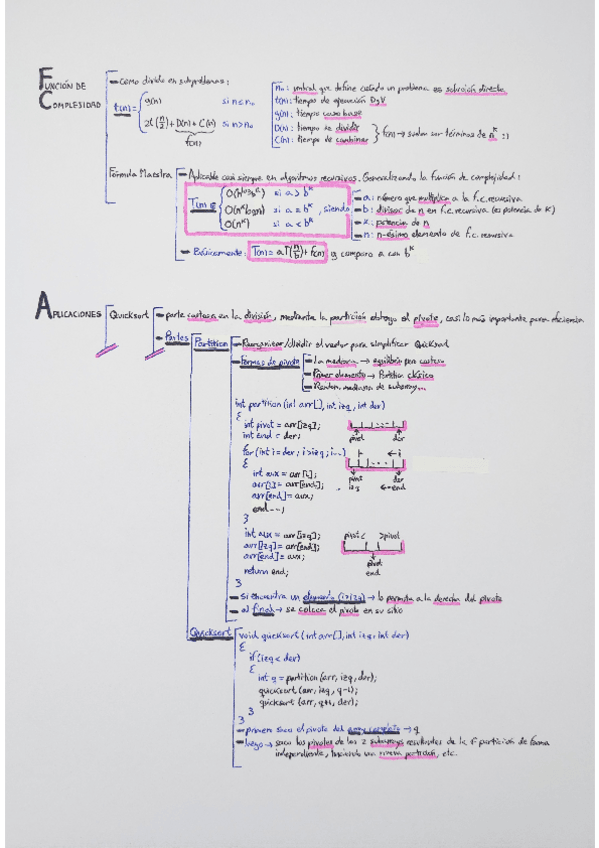 FUNCIÓN DE COMPLEJIDAD
como divido en subproblemas:
t(n) = { g(n) si n ≤ n₀
2t(n/2) + D(n) + C(n) si n > n₀
f(n)
n₀: umbral que define cuándo un problema es solución directa
t(n): tiempo de ejecución DyV
g(n): tiempo caso base
D(n): tiempo de dividir
C(n): tiempo de combinar } f(n) → suelen ser términos de n^k :)
Fórmula Maestra
Aplicable casi siempre en algoritmos recursivos. Generalizando la función de complejidad:
T(n) ∈ { O(n^log_b a) si a > b^k
O(n^k logn) si a = b^k , siendo
O(n^k) si a < b^k
a: número que multiplica a la f.c. recursiva
b: divisor de n en f.c. recursiva (es potencia de k)
k: potencia de n
n: n-ésimo elemento de f.c. recursiva
Básicamente: T(n) = aT(n/b) + f(n) y comparo a con b^k
APLICACIONES
Quicksort
parte costosa en la división, mediante la partición obtengo el pivote, casi lo más importante para eficiencia
Partes
Partition
Reorganizar/dividir el vector para simplificar Quicksort
Formas de pivote
La mediana → equilibrio pero costoso
Primer elemento → Partition clásico
Random, mediana de subarray...
int partition (int arr[], int izq, int der)
{
int pivot = arr[izq];
int end = der;
pivot der
for (int i = der; i > izq; i--)
{
i
int aux = arr[i];
arr[i] = arr[end];
arr[end] = aux;
pivot der
izq ←end
end--;
}
int aux = arr[izq];
arr[izq] = arr[end];
arr[end] = aux;
pivot< >pivot
pivot
end
return end;
}
si encuentra un elemento (i>izq) → lo permuta a la derecha del pivote
al final → se coloca el pivote en su sitio
Quicksort
void quicksort (int arr[], int izq, int der)
{
if (izq < der)
{
int q = partition (arr, izq, der);
quicksort (arr, izq, q-1);
quicksort (arr, q+1, der);
}
}
primero saca el pivote del array completo → q
luego → saca los pivotes de los 2 subarrays resultantes de la 1ª partición de forma
independiente, haciendo una nueva partición, etc.